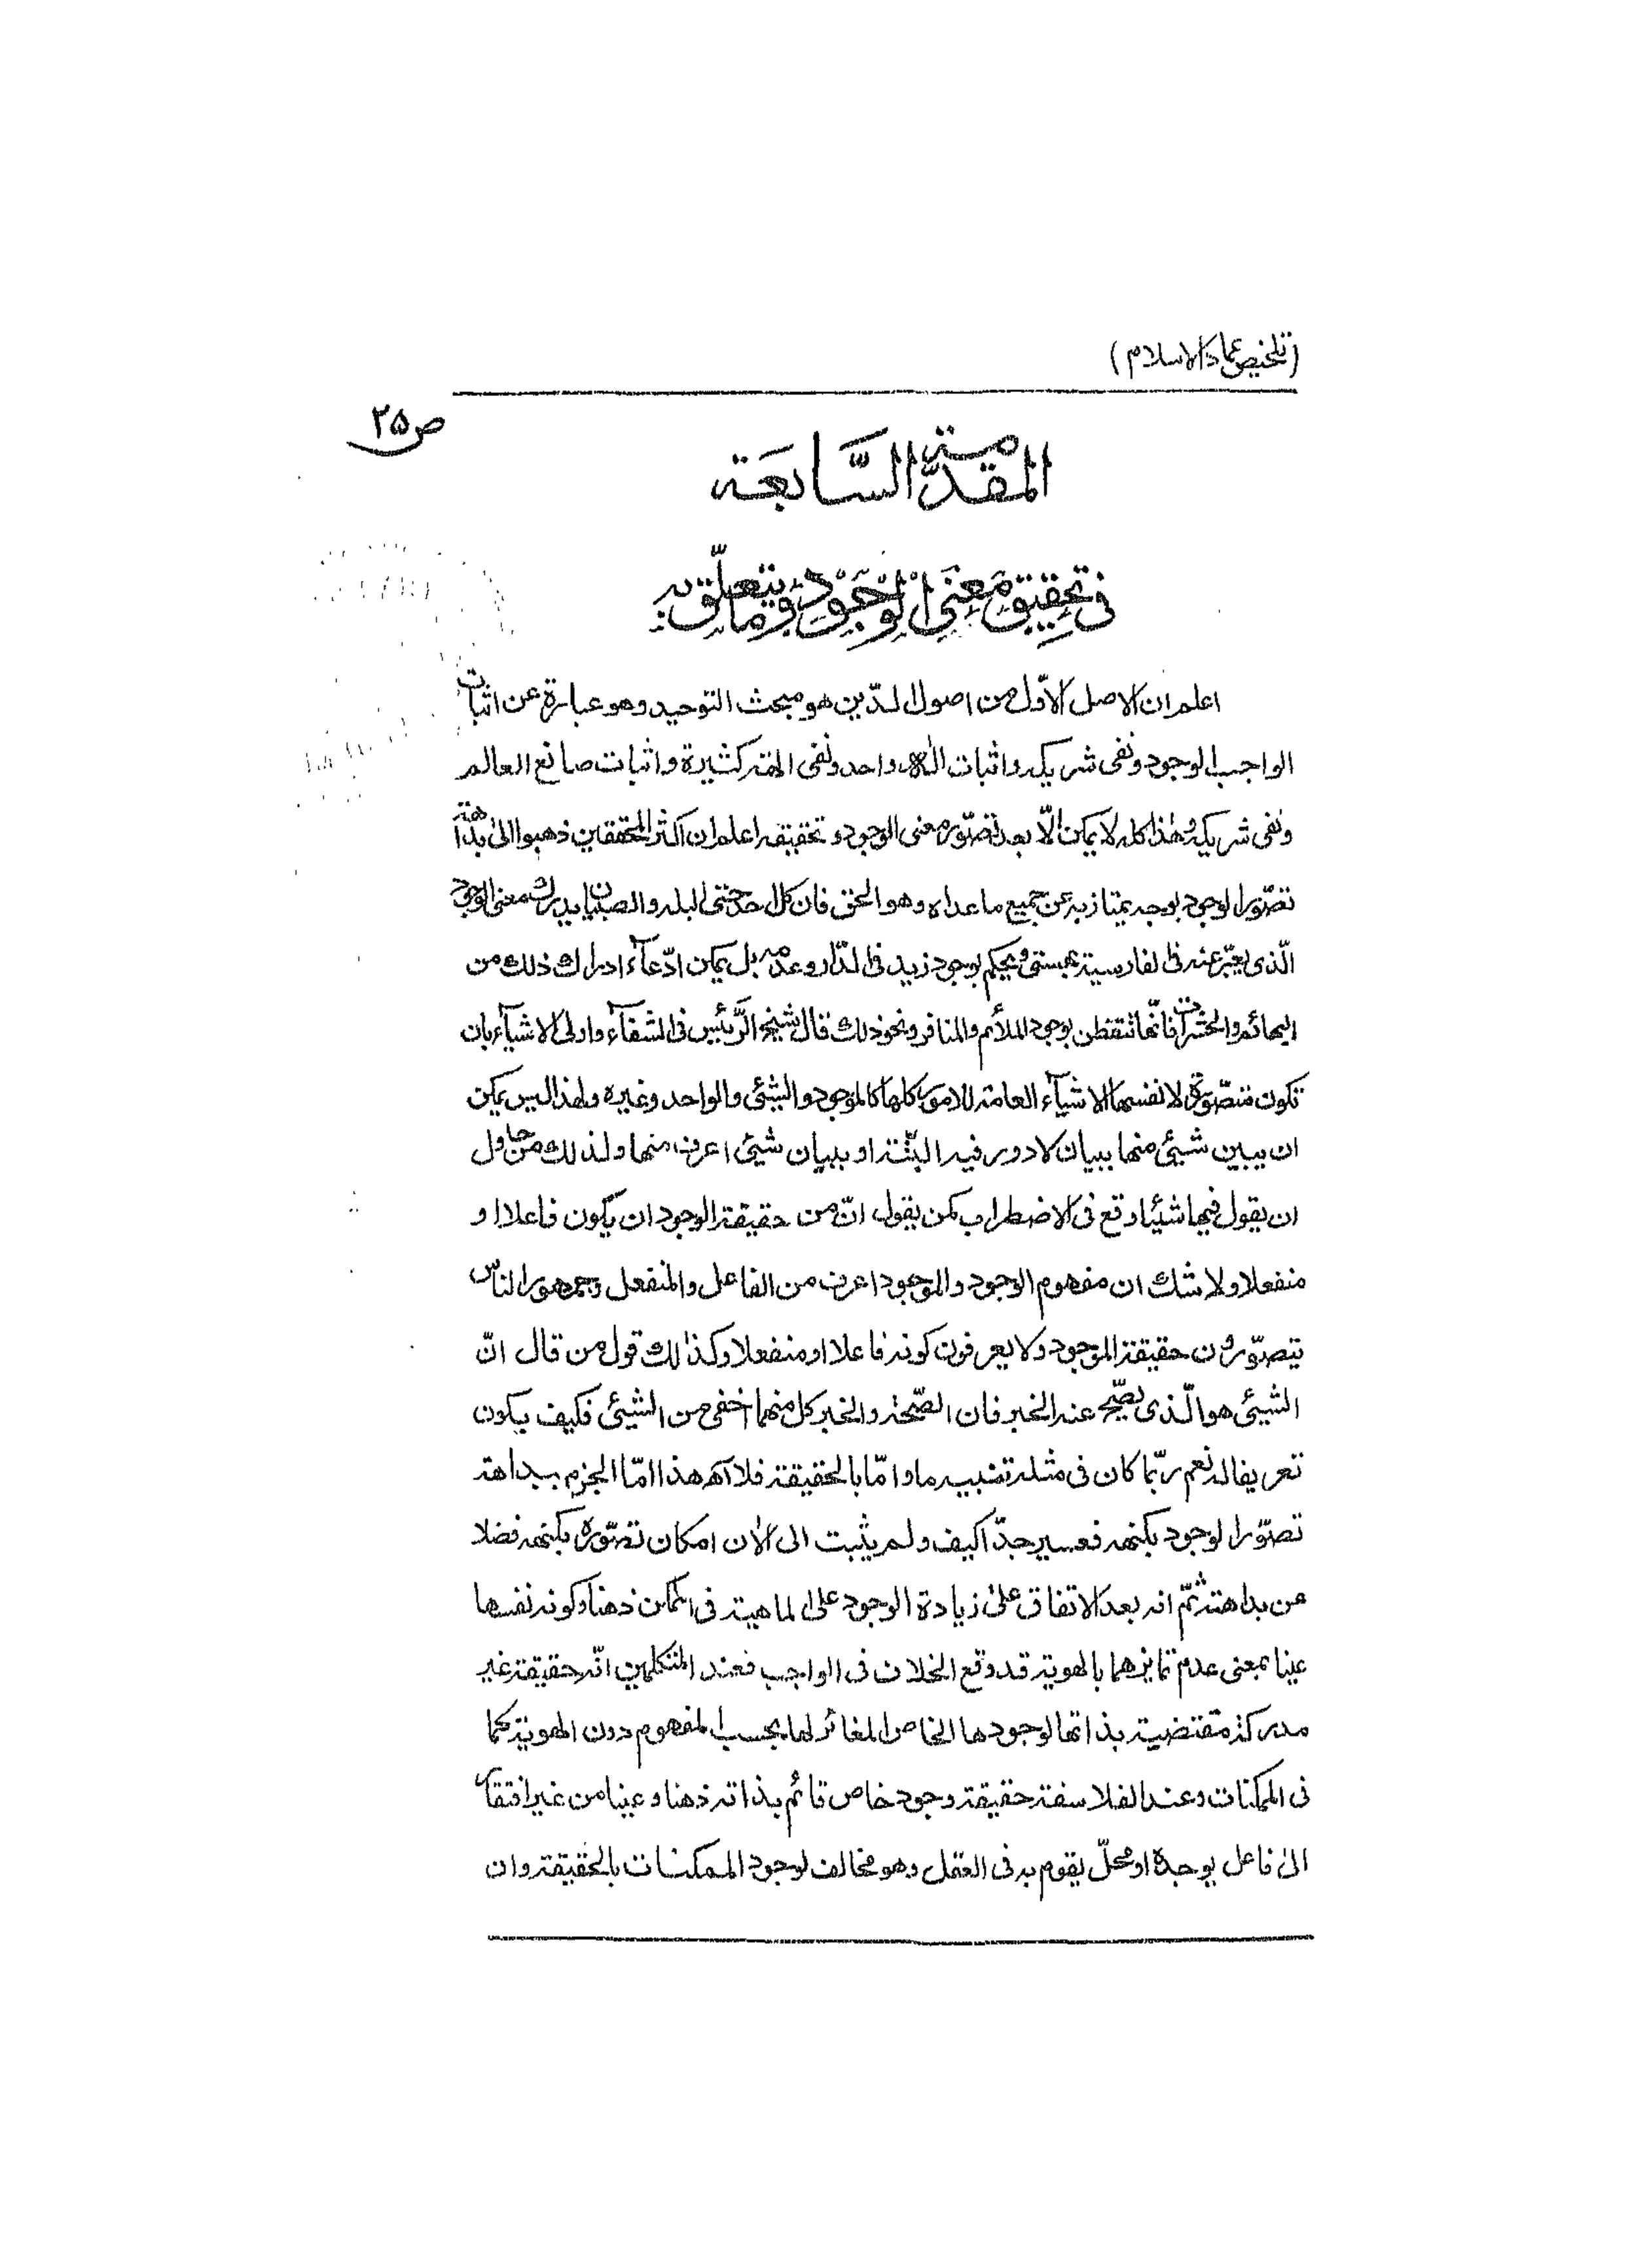 (تلخيص عماد الاسلام)
ص ٢٥
المقدّمة السَّابعَة
فى تحقِيق مَعنَى الوُجُودِ وما يتعلّق به
اعلم ان الاصل الاوّل من اصول الدّين هو مبحث التوحيد وهو عبارة عن اثبات
الواجب الوجود ونفى شريكه واثبات الٰه واحد ونفى الهة كثيرة واثبات صانع العالم
ونفى شريكه وهٰذا كله لا يمكن الّا بعد تصوّر معنى الوجود وتحقيقه اعلم ان اكثر المحققين ذهبوا الىٰ بداهة
تصوّر الوجود بوجه يمتاز به عن جميع ما عداه وهو الحق فان كل احد حتى البله والصبيان يدرك معنى الوجود
الّذى يعبّر عنه فى الفارسية بهستى ويحكم بوجود زيد فى الدّار وعدمه بل يمكن ادّعآء ادراك ذلك من
البهائم والحشرات فانّها تتفطن بوجود الملائم والمنافر ونحو ذلك قال الشيخ الرَّئيس فى الشفآء واولى الاشيآء بان
تكون متصوّرة لانفسها الاشيآء العامة للامور كلها كالموجود والشيئى والواحد وغيره ولهذا ليس يمكن
ان يبين شيئى منها ببيان لا دور فيه البتّة او ببيان شيئى اعرف منها ولذلك من حاول
ان يقول فيها شيئا وقع فى الاضطراب كمن يقول انّ من حقيقة الوجود ان يكون فاعلا او
منفعلا ولا شك ان مفهوم الوجود والموجود اعرف من الفاعل والمنفعل وجمهور الناس
يتصوّرون حقيقة الموجود ولا يعرفون كونه فاعلا او منفعلا وكذٰلك قول من قال انّ
الشيئى هو الّذى يصّح عنه الخبر فان الصّحة والخبر كل منهما اخفى من الشيئى فكيف يكون
تعريفا له نعم ربّما كان فى مثله تنبيه ما وامّا بالحقيقة فلا آه هذا امّا الجزم ببداهة
تصوّر الوجود بكنهه فعسير جدّا كيف ولم يثبت الى الاٰن امكان تصوّره بكنهه فضلا
عن بداهته ثمّ انه بعد الاتفاق علىٰ زيادة الوجود على الماهية فى الممكن ذهنا وكونه نفسها
عينا بمعنى عدم تمايزهما بالهوية قد وقع الخلاف فى الواجب فعند المتكلمين انّه حقيقة غير
مدركة مقتضية بذاتها لوجودها الخاص المغائر لها بحسب المفهوم دون الهوية كما
فى الممكنات وعند الفلاسفة حقيقة وجود خاص قائم بذاته ذهنا وعينا من غير افتقار
الىٰ فاعل يوجده او محلّ يقوم به فى العقل وهو مخالف لوجود الممكنات بالحقيقة وان